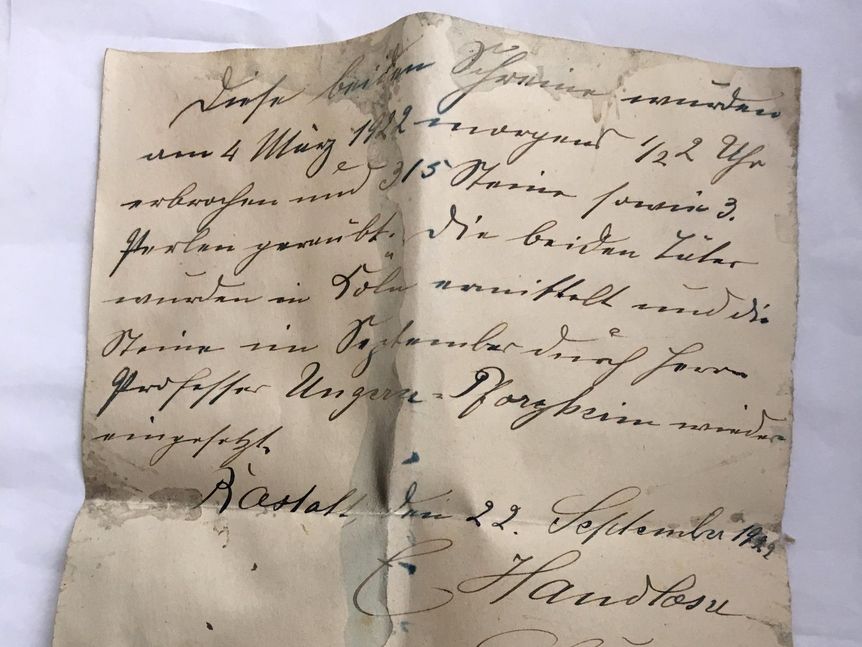 Diese beiden Schreine wurden
am 4 März 1922 morgens 1/2 2 Uhr
erbrochen und 315 Steine sowie 3.
Perlen geraubt. Die beiden Täter
wurden in Köln ermittelt und die
Steine im September durch Herrn
Professor Ungerer-Pforzheim wieder
eingesetzt.
Rastatt, den 22. September 1922
E Handloser